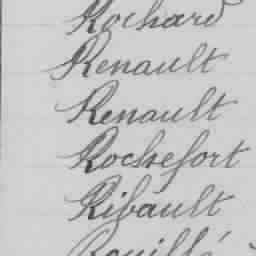 Rochard
Renault
Renault
Rochefort
Ribault
Rouillé